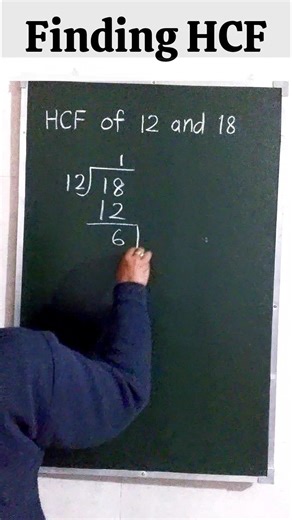 Finding HCF
HCF of 12 and 18
1
12)18
12
6